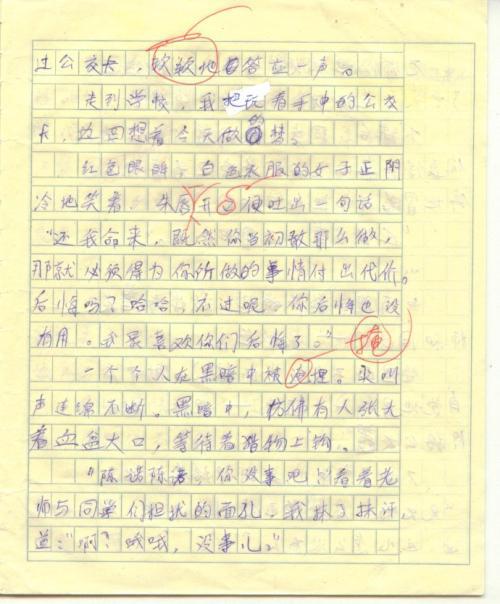 过公交卡，软软地答应一声。
走到学校，我把玩着手中的公交
卡，边回想着今天做的梦。
红色眼睛，白色衣服的女子正阴
冷地笑着，朱唇开便吐出一句话
“还我命来，既然你当初敢那么做，
那就必须得为你所做的事情付出代价。
后悔吗？哈哈，不过呢，你后悔也没
有用。我最喜欢你们后悔了。”
掩
一个个人在黑暗中被埋。哭叫
声连绵不断。黑暗中，仿佛有人张大
着血盆大口，等待着猎物上钩。
“陈诺陈诺，你没事吧”看着老
师与同学们担忧的面孔，我抹了抹汗
道：“啊？哦哦，没事儿。”